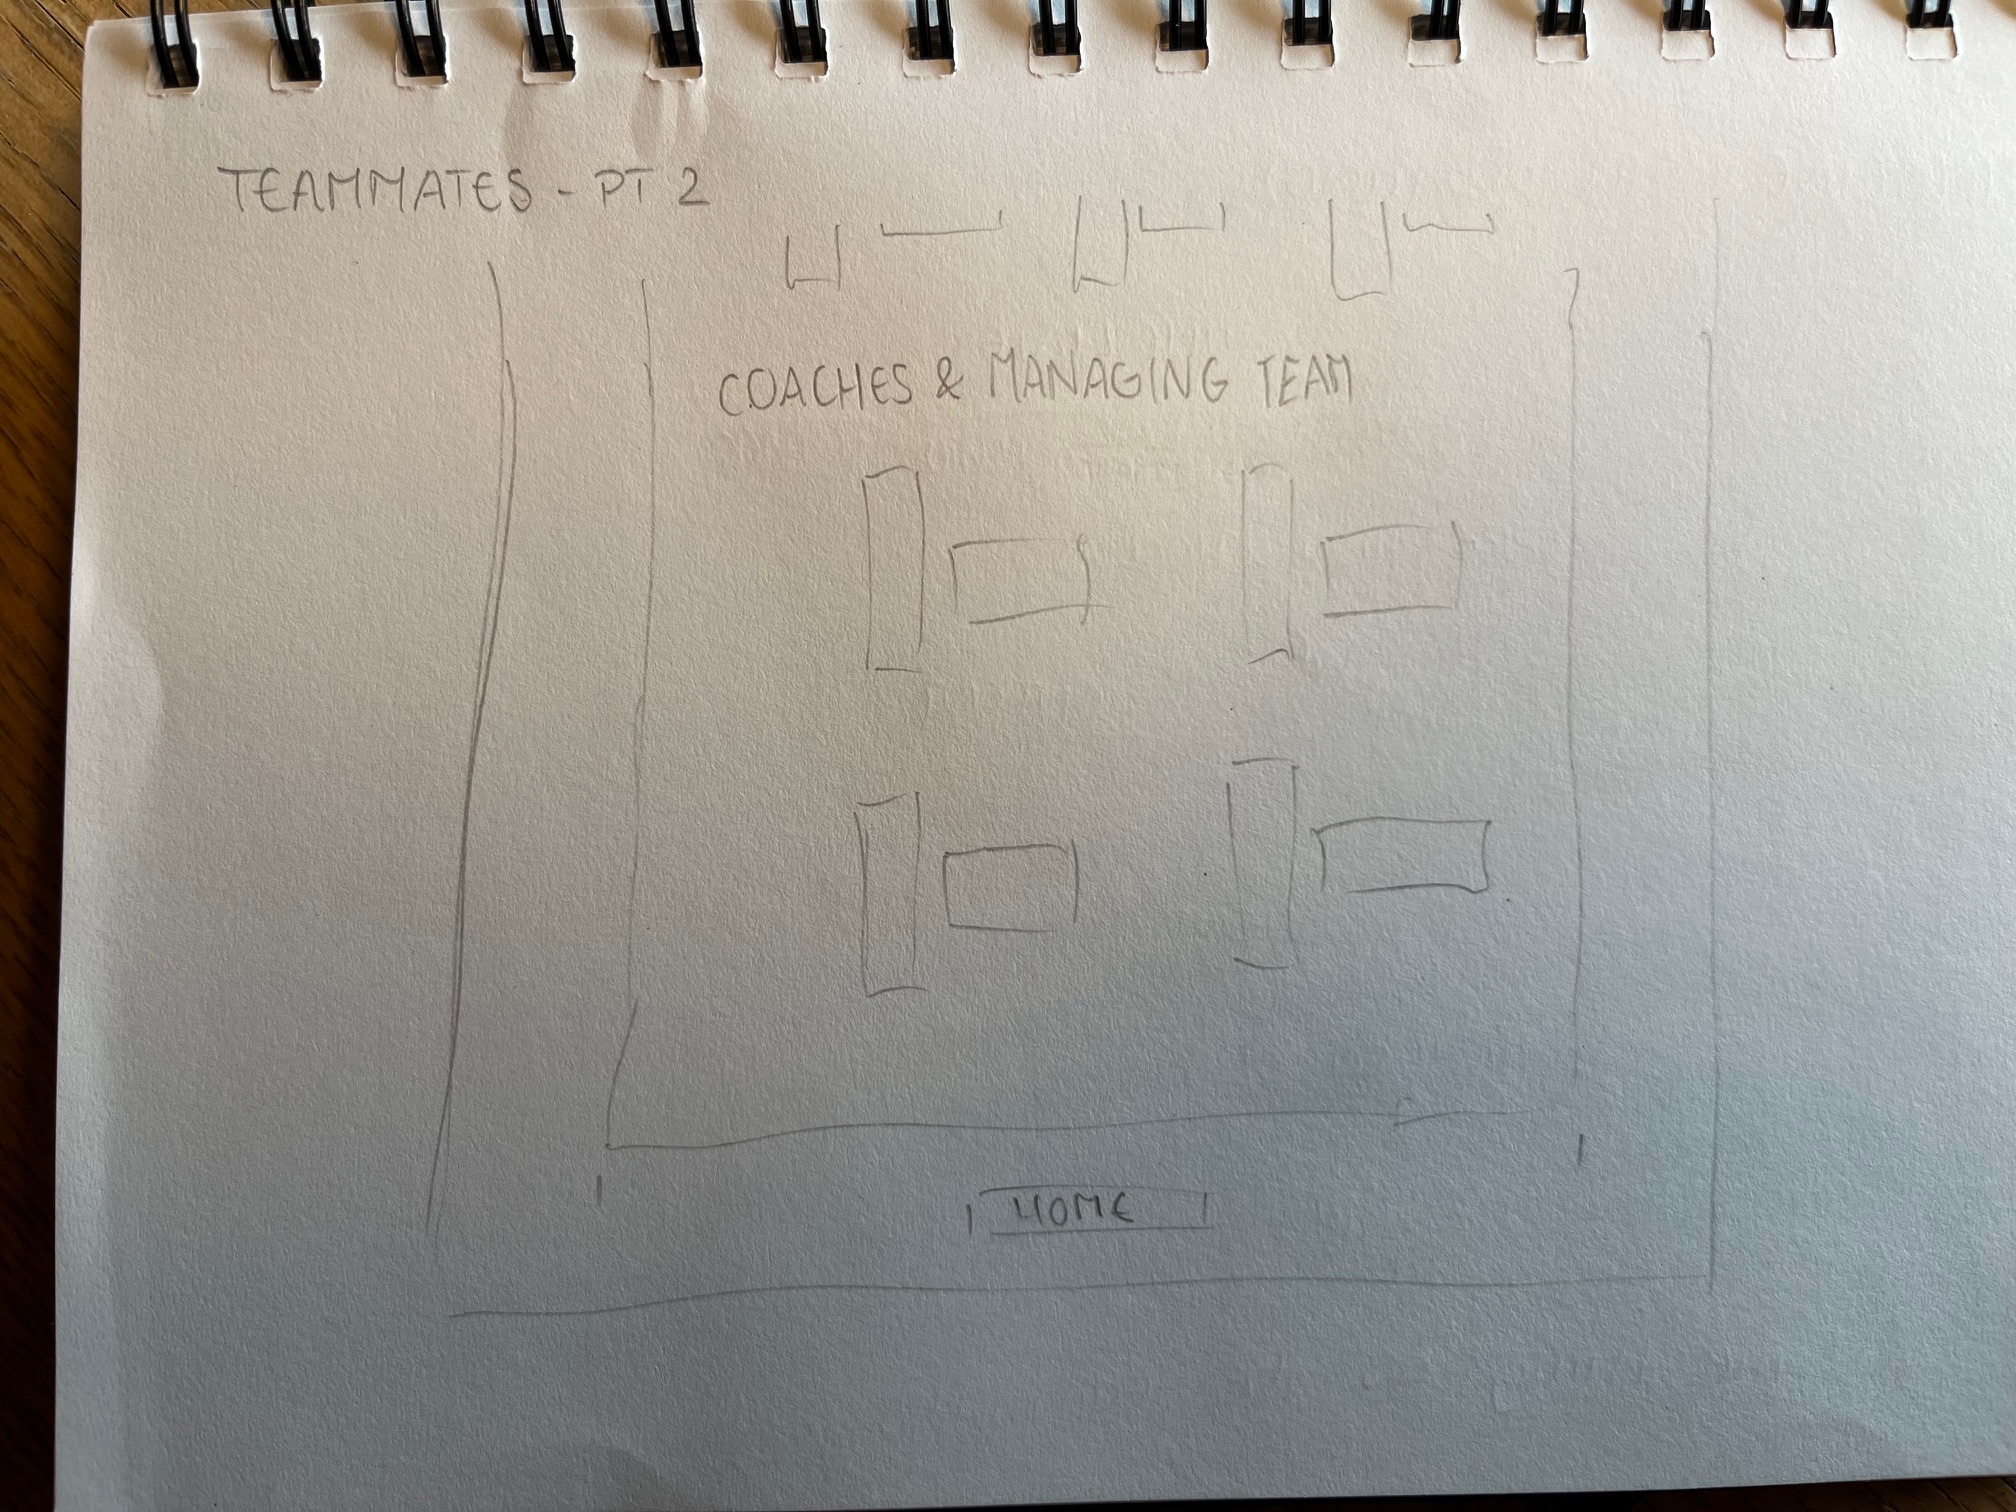 TEAMMATES - PT 2
COACHES & MANAGING TEAM
HOME